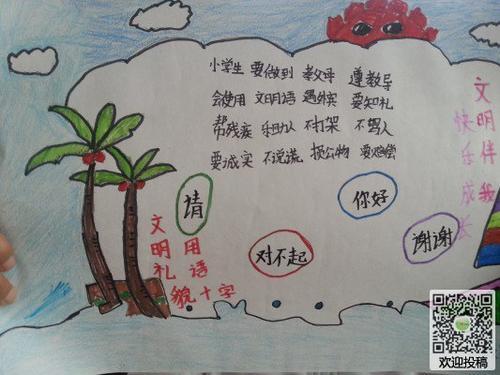 小学生 要做到 孝父母 遵教导
会使用 文明语 遇外宾 要知礼
帮残疾 不打架 不骂人
要诚实 不说谎 损公物 要赔偿
请
你好
对不起
谢谢
文明礼貌
用语十字
文明伴我
快乐成长
欢迎投稿